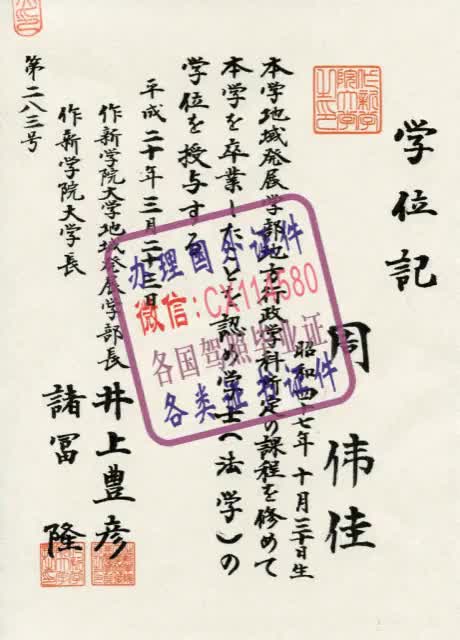 学位記
周 伟佳
昭和四十七年十月三十日生
本学地域発展学部地方行政学科所定の課程を修めて
本学を卒業したことを認め学士(法学)の
学位を授与する
平成二十年三月二十三日
作新学院大学地域発展学部長 井上豊彦
作新学院大学長 諸冨 隆
第二八三号
办理国外证件
微信:CX114580
各国驾照毕业证
各类证件